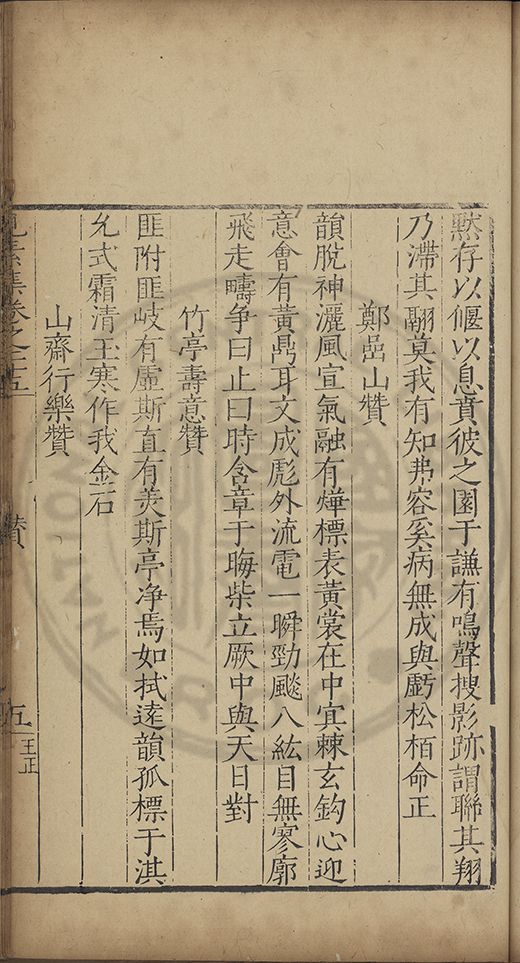 黙存以偃以息賁彼之園于謙有鳴聲搜影跡謂聯其翔
乃滯其翮莫我有知弗容奚病無成與虧松栢命正
鄭嵒山贊
韻脫神灑風宣氣融有燁標表黃裳在中宜棘玄鈞心迎
意會有黃鼎耳文成彪外流電一瞬勁飈八紘目無寥廓
飛走疇争曰止曰時含章于晦柴立厥中與天日對
竹亭壽意贊
匪附匪岐有虛斯直有美斯亭净焉如拭逺韻孤標于淇
允式霜清玉寒作我金石
山齋行樂贊
見素集卷之二十五
贊
五
王正